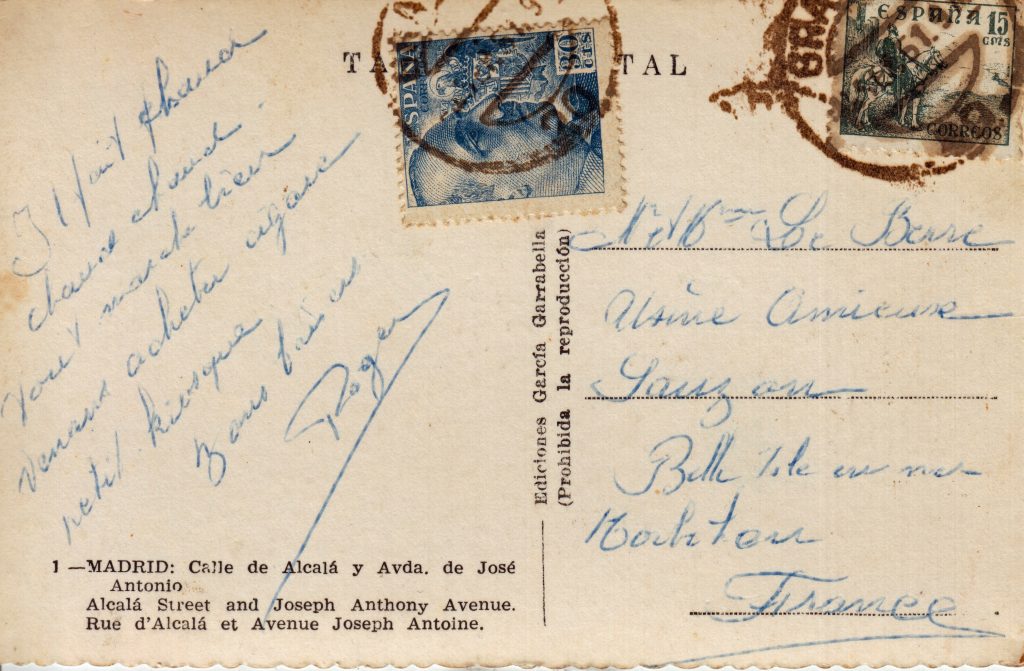 TA TAL
ESPAÑA
30
CTS
ESPAÑA 15
CTS
CORREOS
Il fait chaud
chaud
Tout marche bien
venons acheter cigare
petit kiosque
Bons baisers
Roger
1 —MADRID: Calle de Alcalá y Avda. de José
Antonio
Alcalá Street and Joseph Anthony Avenue.
Rue d'Alcalá et Avenue Joseph Antoine.
Ediciones García Garrabella
(Prohibida la reproducción)
Le Berre
Usine Amieux
Sauzon
Belle Isle en mer
Morbihan
France